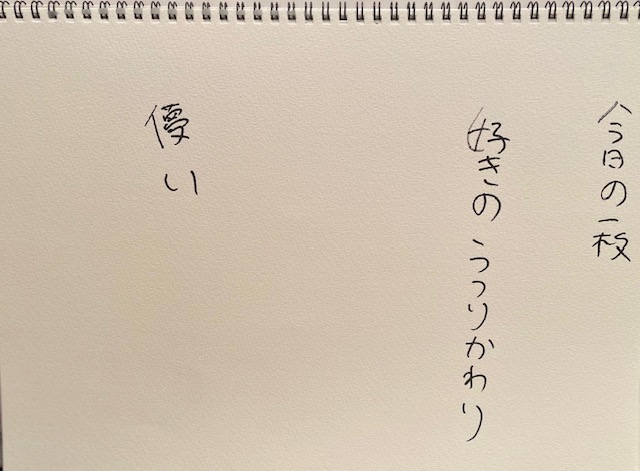 今日の一枚
好きのうつりかわり
優い